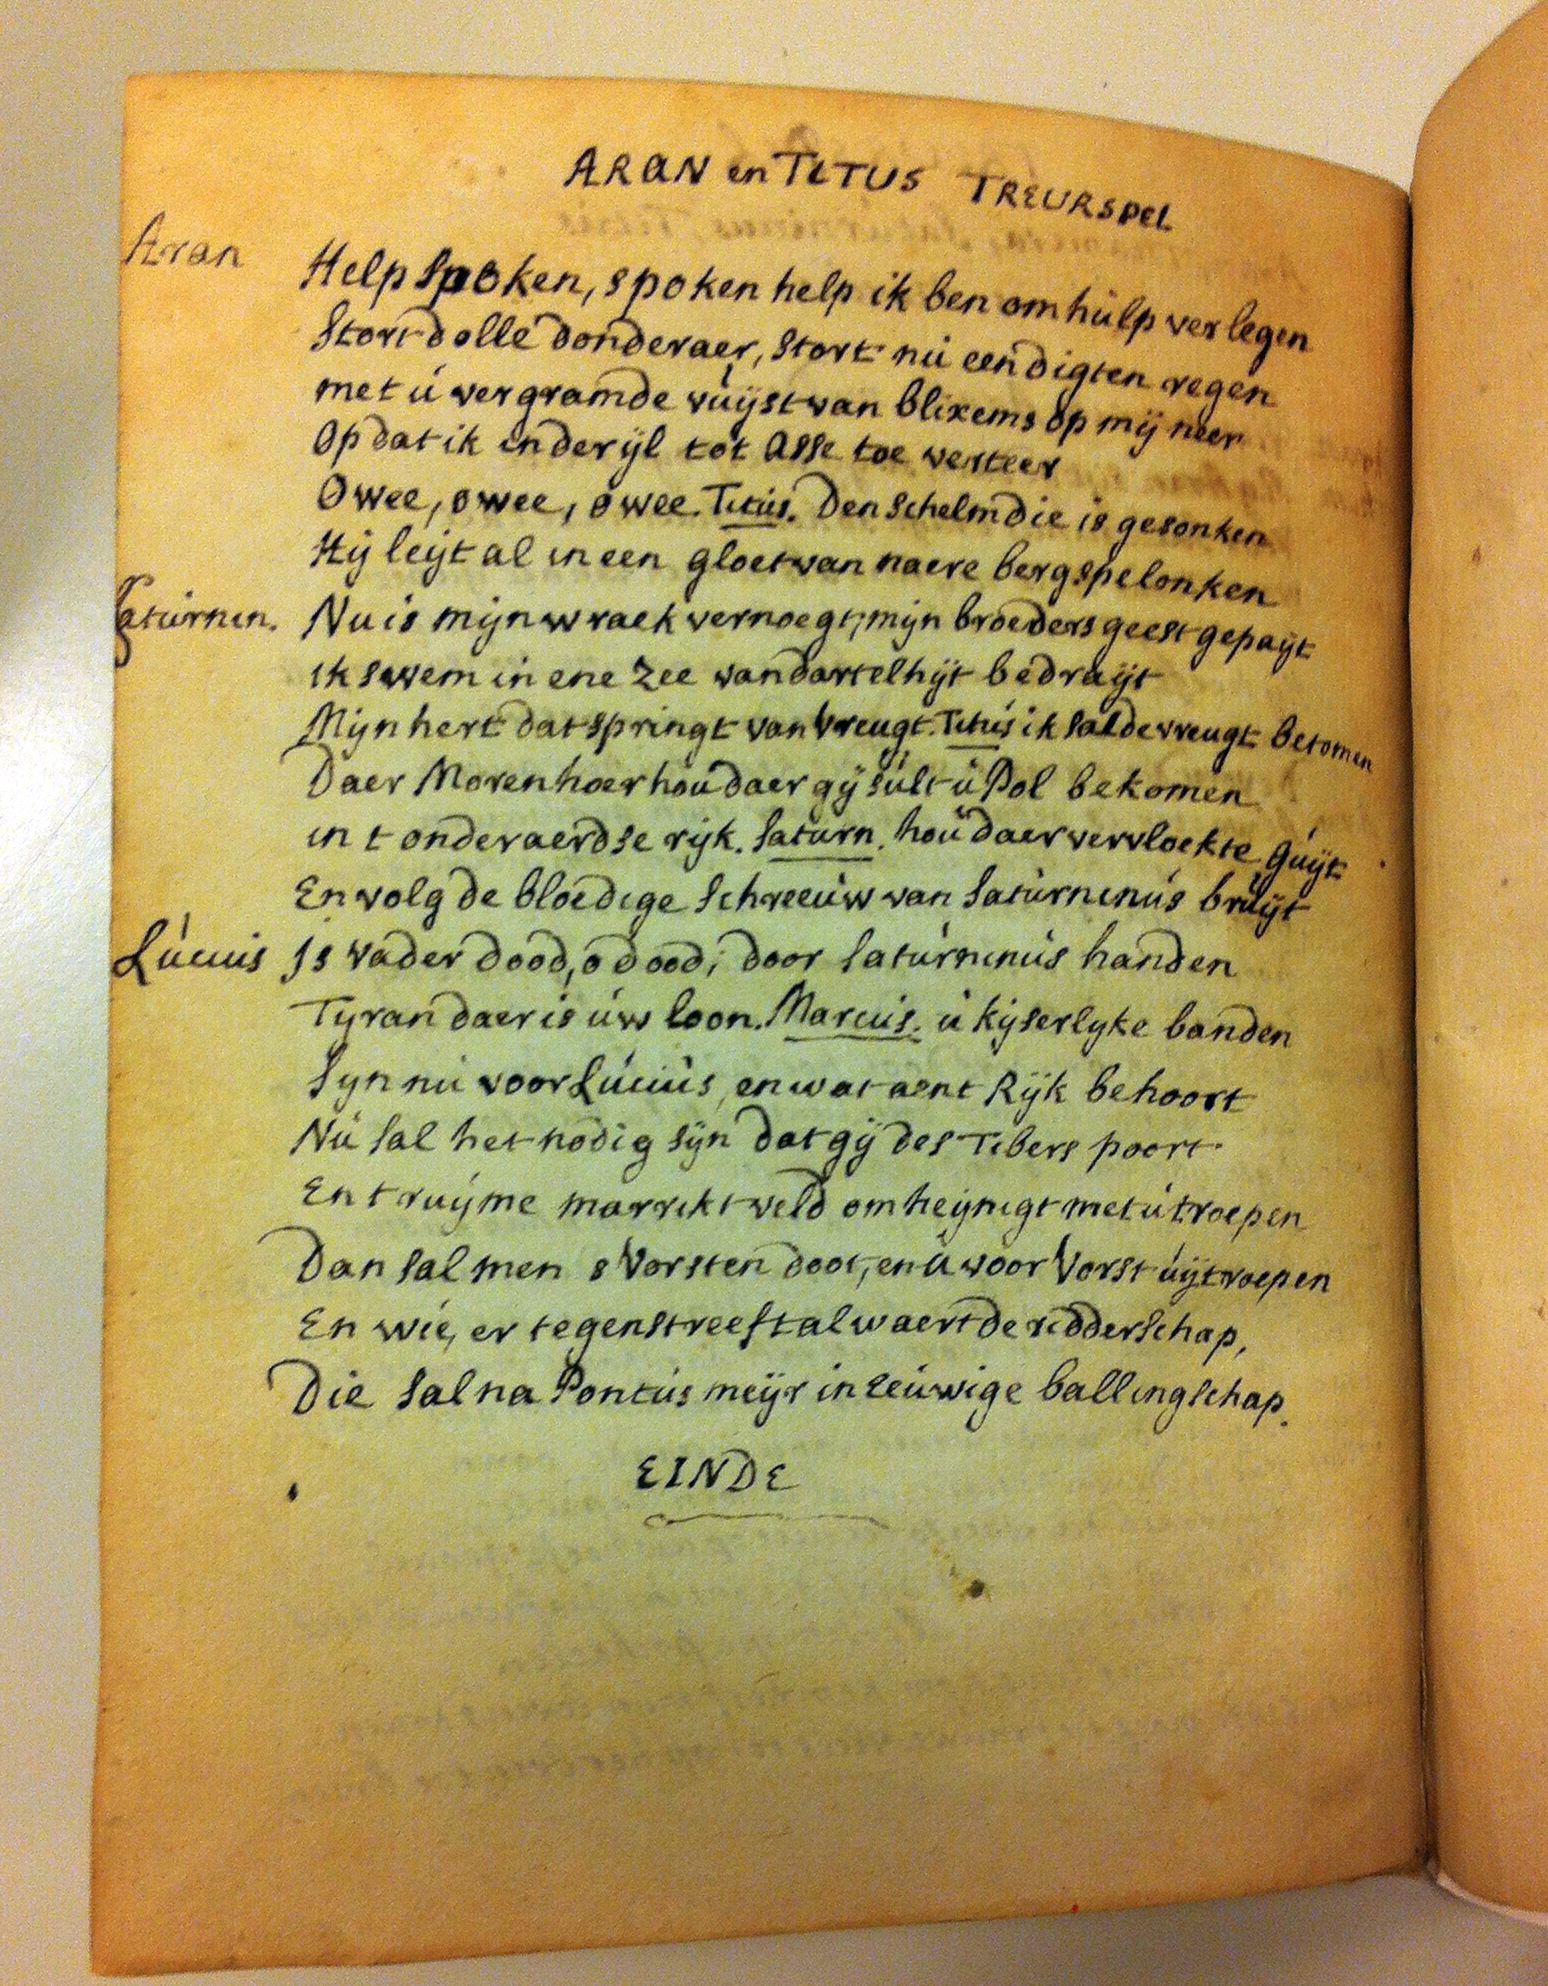 ARAN en TITUS TREURSPEL
Aran Help spoken, spoken help ik ben om hulp verlegen
Stort dolle donderaer, stort nu een digten regen
met ú vergramde vuijst van blixems op mij neer
Op dat ik in der ijl tot asse toe verteer
O wee, o wee, o wee. Titús. Den schelm die is gesonken
Hij leijt al in een gloet van naere bergspelonken
Saturnin. Nu is mijn wraek vernoegt, mijn broeders geest gepaijt
ik swem in ene zee van dartelhijt bedraijt
Mijn hert dat springt van vreugt. Titús ik sal de vreugt betomen
Daer Morenhoer hou daer gij sult u Pol bekomen
in t onderaerdse rijk. Saturn. hou daer vervloekte guijt
En volg de bloedige schreeuw van Saturninus bruijt
Lúcius Is vader dood, o dood; door Saturninus handen
Tyran daer is úw loon. Marcús. u kijserlyke banden
Syn nú voor Lúcius, en wat aent Rijk behoort
Nú sal het nodig sijn dat gij des Tibers poort
En t ruijme marrikt veld omheijnigt met ú troepen
Dan sal men s Vorsten doot, en ú voor Vorst úijtroepen
En wie, er tegenstreeft al waert de ridderschap,
Die sal na Pontús meijr in eeúwige ballingschap.
EINDE